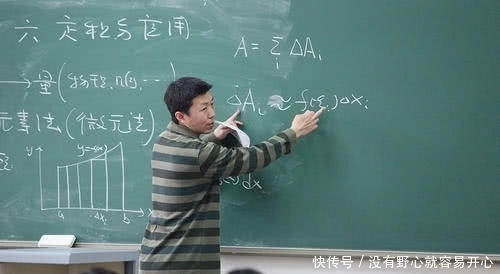 六 定积分应用
A = ∑ ΔAᵢ
i
→ 量(物理,几何,…
ΔAᵢ ≈ f(ξᵢ)Δxᵢ
元素法(微元法)
y
y=f(x)
dx
a Δxᵢ b x
快传号 / 没有野心就容易开心